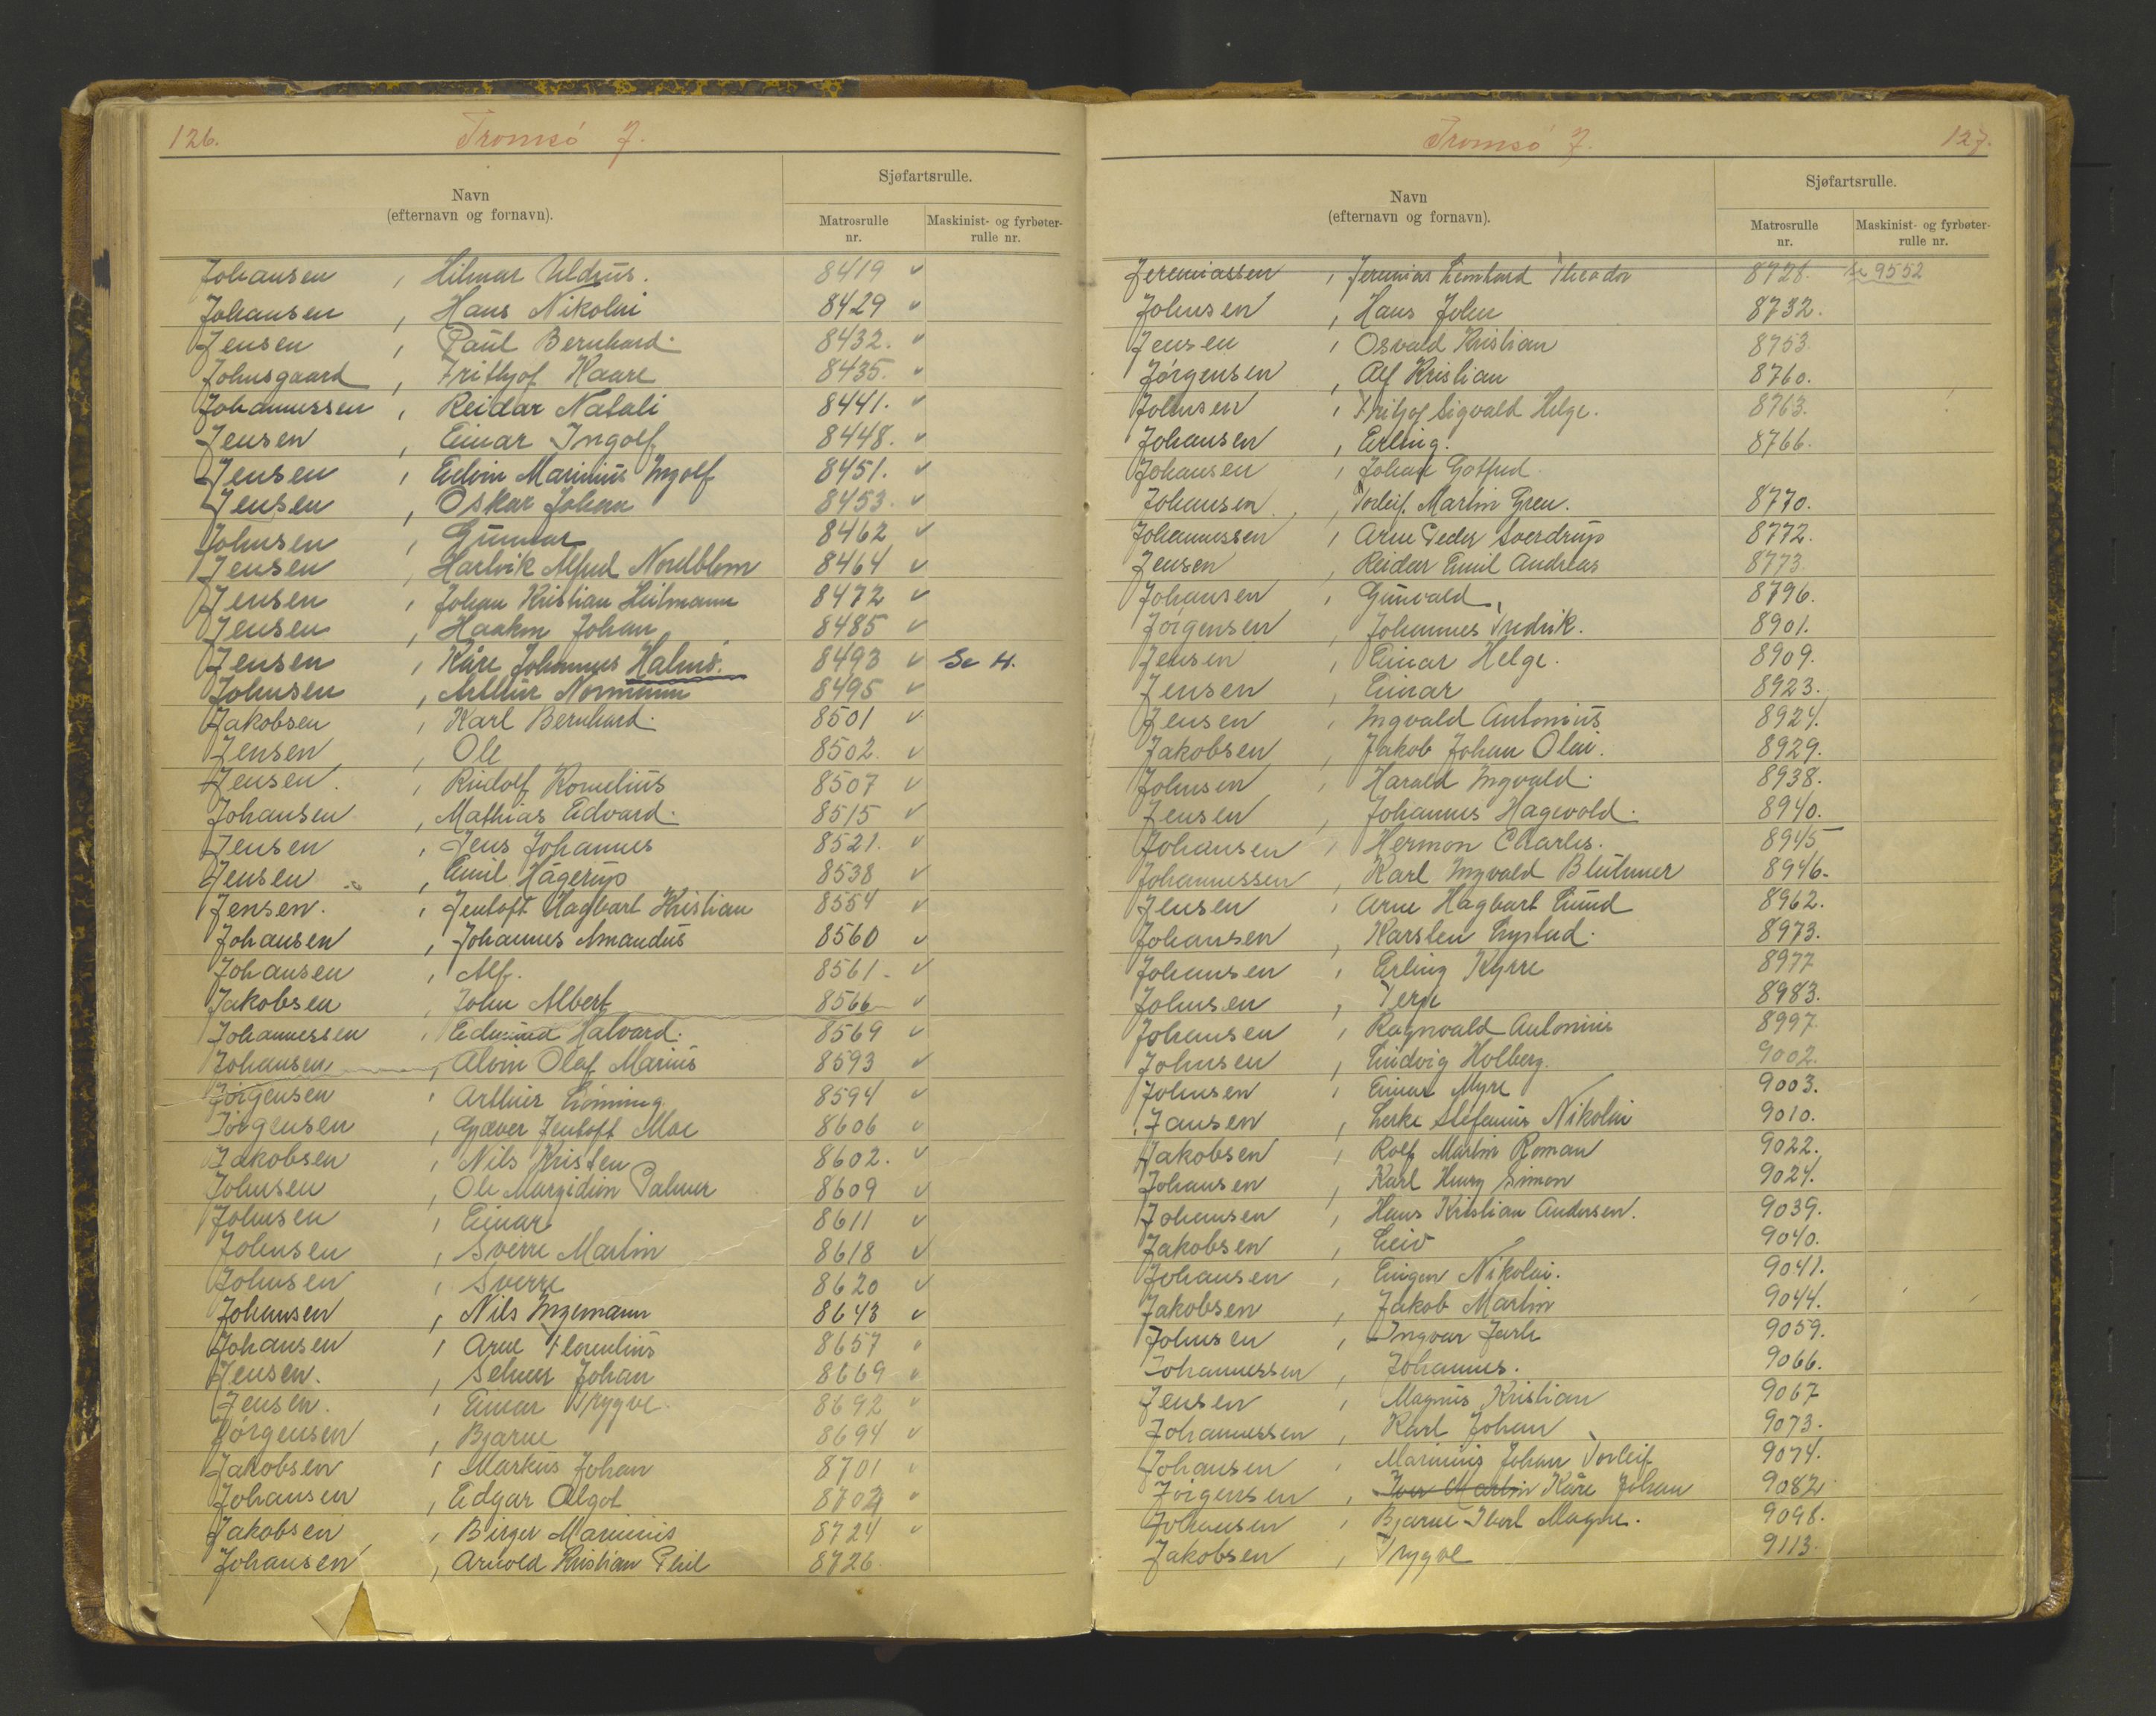 126.
Tromsø J.
Navn
(efternavn og fornavn).
Sjøfartsrulle.
Matrosrulle
nr.
Maskinist- og fyrbøter-
rulle nr.
Johansen , Hilmar Uldrus. 8419 ✓
Johansen , Hans Nikolai 8429 ✓
Jensen , Paul Bernhard. 8432. ✓
Johnsgaard , Frithjof Kaare 8435. ✓
Johannessen , Reidar Natali 8441. ✓
Jensen , Einar Ingolf 8448. ✓
Jensen , Edvin Marinius Ingolf 8451. ✓
Jensen , Oskar Johan 8453. ✓
Johnsen , Gunnar 8462 ✓
Jensen , Hartvik Alfred Nordblom 8464 ✓
Jensen , Johan Kristian Heitmann 8472 ✓
Jensen , Haakon Johan 8485 ✓
Jensen , Kåre Johannes Halms. 8493 ✓ Se H.
Johnsen , Arthur Normann 8495 ✓
Jakobsen , Karl Bernhard. 8501 ✓
Jensen , Ole 8502. ✓
Jensen. , Rudolf Kornelius 8507 ✓
Johansen , Mathias Edvard. 8515 ✓
Jensen , Jens Johannes 8521. ✓
Jensen , Emil Hagerup 8538 ✓
Jensen. , Jentoft Hagbart Kristian 8554 ✓
Johansen , Johannes Amandus 8560 ✓
Johansen , Alf. 8561. ✓
Jakobsen , John Albert 8566 ✓
Johannessen , Edmund Halvard. 8569 ✓
Johansen , Alvin Olaf Marius 8593 ✓
Jørgensen , Arthur Lønning. 8594 ✓
Jørgensen , Gjæver Jentoft Moe 8606 ✓
Jakobsen , Nils Kristen 8602. ✓
Johnsen , Ole Margidion Palmer 8609 ✓
Johnsen , Einar 8611 ✓
Johnsen , Sverre Martin 8618 ✓
Johnsen , Sverre 8620 ✓
Johansen , Nils Ingemann 8643 ✓
Johansen , Arne Florentius 8657 ✓
Jensen. , Selmer Johan 8669 ✓
Jensen. , Einar Trygve. 8692 ✓
Jørgensen , Bjarne 8694 ✓
Jakobsen , Markus Johan 8701 ✓
Johansen , Edgar Algot ✓
Jakobsen , Birger Marinius 8724 ✓
Johansen , Arnold Kristian Phil 8726.
Tromsø J.
127.
Navn
(efternavn og fornavn).
Sjøfartsrulle.
Matrosrulle
nr.
Maskinist- og fyrbøter-
rulle nr.
Jeremiassen , Jeremias Leonhard Theodor 8728. se 9552
Johnsen , Hans John 8732.
Jensen , Osvald Kristian 8753.
Jørgensen , Alf Kristian 8760.
Johnsen , Fritjof Sigvald Helge. 8763.
Johansen , Erling. 8766.
Johansen , Johan Gotfred.
Johansen , Torleif Martin Green. 8770.
Johannessen , Arne Peder Sverdrup 8772.
Jensen , Reidar Emil Andreas 8773
Johansen , Gunvald, 8796.
Jørgensen , Johannes Fredrik. 8901.
Jensen , Einar Helge. 8909.
Jensen , Einar 8923.
Jensen , Ingvald Antonius 8924.
Jakobsen , Jakob Johan Olai. 8929.
Johnsen , Harald Ingvald. 8938.
Jensen , Johannes Hagevold. 8940.
Johansen , Hermon Charles. 8945
Johannessen , Karl Ingvald Bluthner 8946.
Jensen , Arne Hagbart Lund 8962.
Johansen , Karsten Lystad. 8973.
Johansen , Erling Kyrre 8977
Johnsen , Terje 8983.
Johansen , Ragnvald Antonius 8997
Johnsen , Ludvig Holberg. 9002.
Johnsen , Einar Myre 9003.
Jansen , Lerke Stefanus Nikolai 9010.
Jakobsen , Rolf Martin Roman 9022.
Johansen , Karl Henry Simon 9024.
Johansen , Hans Kristian Andersen. 9039.
Jakobsen , Leiv 9040.
Johansen , Eugen Nikolai. 9041.
Jakobsen , Jakob Martin 9044.
Johnsen , Ingvar Jarle 9059.
Johannessen , Johannes. 9066.
Jensen , Magnus Kristian 9067
Johannessen , Karl Johan 9073.
Johansen , Marinius Johan Torleif 9074.
Jørgensen , Iver Martin Kåre Johan 9082
Johansen , Bjarne Magne. 9098.
Jakobsen , Trygve 9113.